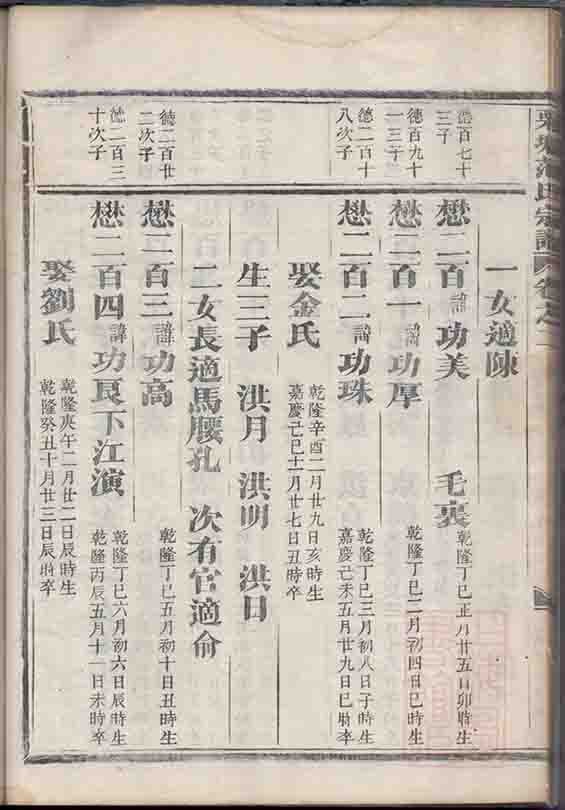 范氏宗譜 卷之二
一女適陳
德百七十
三子
懋二百諱功美
毛裏
乾隆丁巳正月廿五日卯時生
德百九十
一三子
懋二百一諱功厚
乾隆丁巳二月初四日巳時生
德二百十
八次子
懋二百二諱功珠
乾隆丁巳三月初八日子時生
嘉慶己未五月廿九日巳時卒
娶金氏
乾隆辛酉二月廿九日亥時生
嘉慶己巳十二月廿七日丑時卒
生三子 洪月 洪明 洪日
二女長適馬腰孔 次有官適俞
德二百廿
二次子
懋二百三諱功高
乾隆丁巳五月初十日丑時生
德二百三
十次子
懋二百四諱功艮下江演
乾隆丁巳六月初六日辰時生
乾隆丙辰五月十一日未時卒
娶劉氏
乾隆庚午二月廿二日辰時生
乾隆癸丑十月廿三日辰時卒